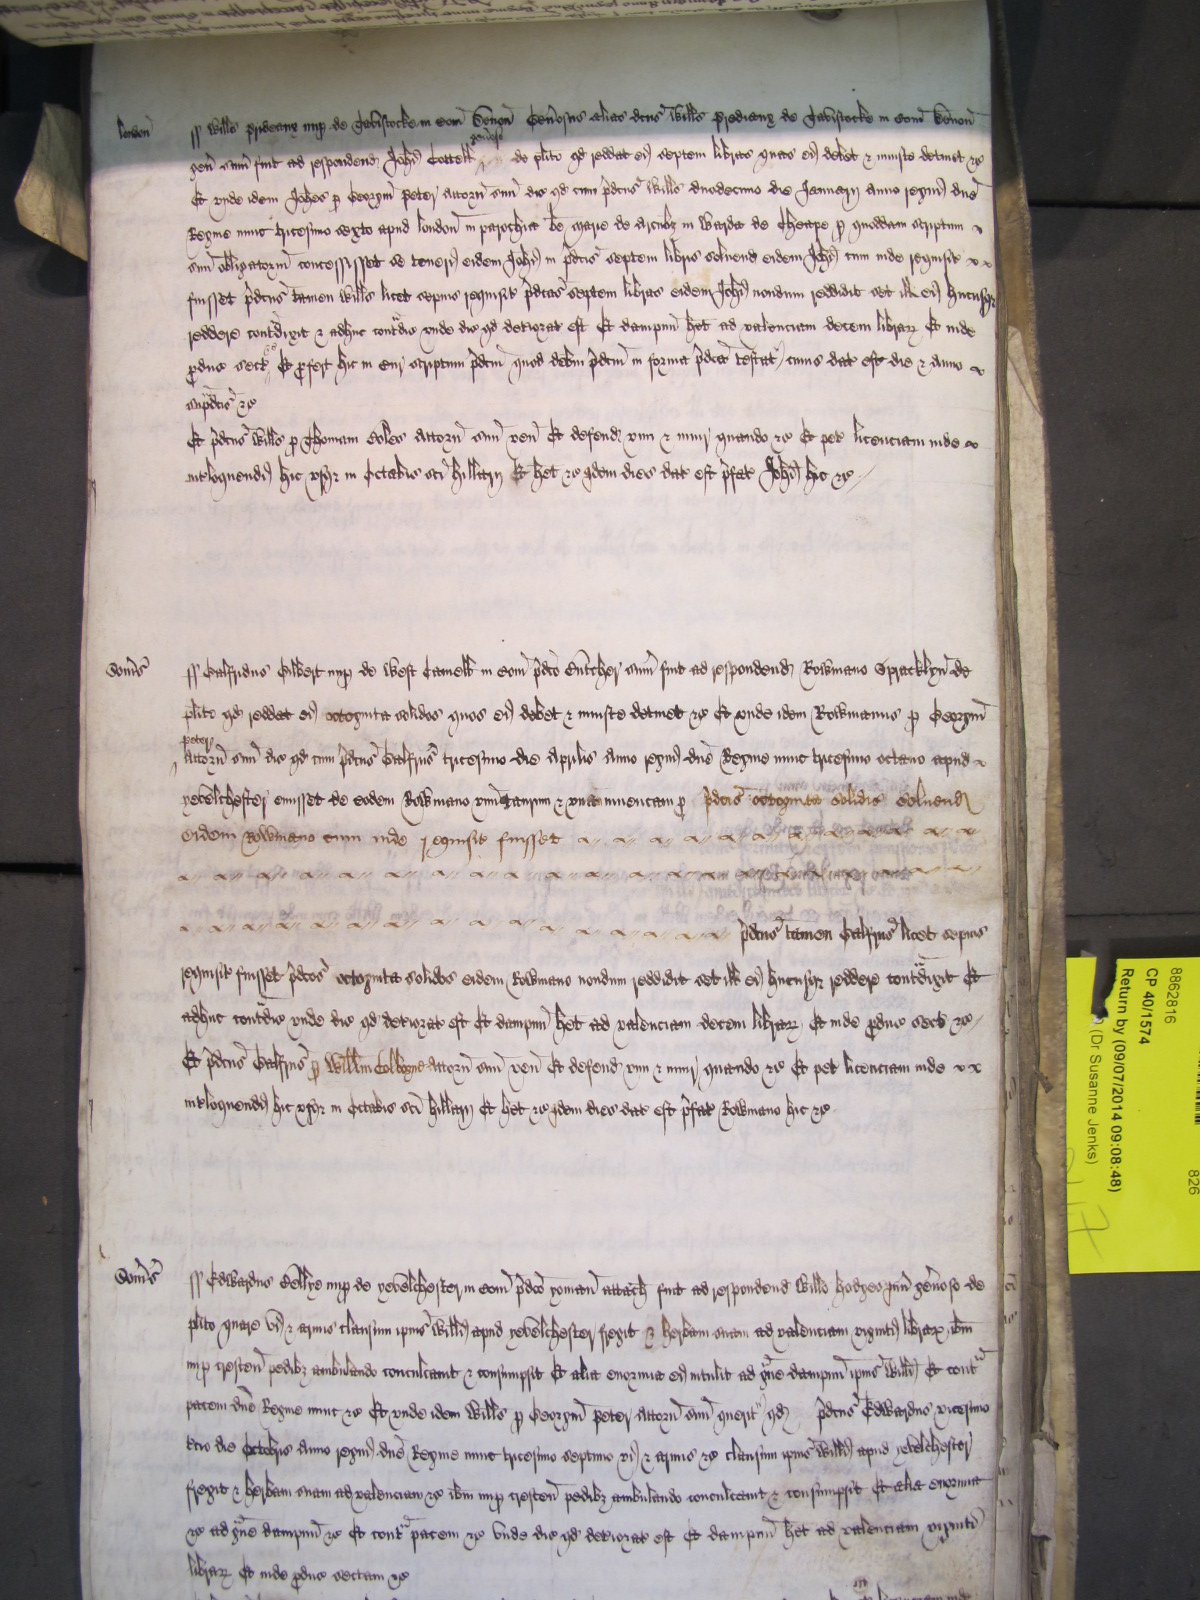 London ss Willus Prideaux nup de Tavistocke in Com Devon Generosus alias dcus Willus Predeaux de Tavistocke in Com Devon
gen sum fuit ad respondend Johi Cottell generoso de plito qd reddat ei septem libras quas ei debet & iniuste detinet &c
Et unde idem Johes p Georgiu Peter Attorn suu dic qd cum pdcus Willus duodecimo die Januarij anno regni dne
Regine nunc tricesimo sexto apud London in parochia be Marie de Arcubz in Warda de Cheape p quoddam scriptum
suu obligatoriu concessisset se teneri eidem Johi in pdcis septem libris solvend eidem Johi cum inde requisit
fuisset pdcus tamen Willus licet sepius requisit pdcas septem libras eidem Johi nondum reddidit set ill ei hucusqz
reddere contradixit & adhuc contradic unde dic qd deteriorat est Et dampnu het ad valenciam decem librar Et inde
produc sect &c Et profert hic in Cur scriptum pdcm quod debm pdcm in forma pdca testat cuius dat est die & anno
supradcis &c
Et pdcus Willus p Thomam Coles Attorn suu ven Et defend vim & iniur quando &c Et pet licenciam inde
interloquendi hic usqz in Octabis sci Hillarij Et het &c Idem dies dat est pfat Johi hic &c
Somers ss Galfridus Gilbert nup de West Camell in Com pdco Butcher sum fuit ad respondend Rowmano Spracklyn de
plito qd reddat ei octoginta solidos quos ei debet & iniuste detinet &c Et unde idem Rowmanus p Georgiu
Peter Attorn suu dic qd cum pdcus Galfrus tricesimo die Aprilis anno regni dne Regine nunc tricesimo octavo apud
Yevelchester emisset de eodem Rowmano unu taurum & una iuvencam p pdcis octoginta solidis solvend
eidem Rowmano cum inde requisit fuisset
pdcus tamen Galfrus licet sepius
requisit fuisset pdcos octoginta solidos eidem Rowmano nondum reddidit set ill ei hucusqz reddere contradixit Et
adhuc contradic unde dic qd deteriorat est Et dampnu het ad valenciam decem librar Et inde produc sect &c
Et pdcus Galfrus p Willm Colborne Attorn suu ven Et defend vim & iniur quando &c Et pet licenciam inde
interloquendi hic usqz in Octabis sci Hillarij Et het &c Idem dies dat est pfat Rowmano hic &c
Somers ss Edwardus nup de Yevelchester in Com pdco yoman attach fuit ad respondend Willo Hodges Iuni generoso de
plito quare vi & armis clausum ipius Willi apud Yevelchester fregit & herbam suam ad valenciam viginti librar ibm
nup crescen pedibz ambulando conculcavit & consumpsit Et alia enormia ei intulit ad grave dampnu ipius Willi Et contra
pacem dne Regine nunc &c Et unde idem Willus p Georgiu Peter Attorn suu querit qd pdcus Edwardus vicesimo
die Octobris anno regni dne Regine nunc tricesimo septimo vi & armis &c clausum ipius Willi apud Yevelchester
fregit & herbam suam ad valenciam &c ibm nup crescen pedibz ambulando conculcavit & consumpsit Et alia enormia
&c ad grave dampnu &c Et contra pacem &c Unde dic qd deteriorat est Et dampnu het ad valenciam viginti
librar Et inde produc sectam &c
8862816
CP 40/1574
Return by (09/07/2014 09:08:48)
(Dr Susanne Jenks)
826